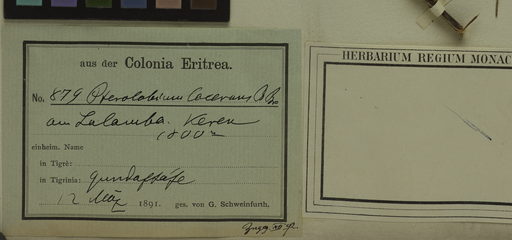 aus der Colonia Eritrea.
No. 879 Pterolobium lacerans R Br
am Lalamba. Keren
1800 m
einheim. Name
in Tigrè:
in Tigrinia:
12 März 1891. ges. von G. Schweinfurth.
HERBARIUM REGIUM MONAC